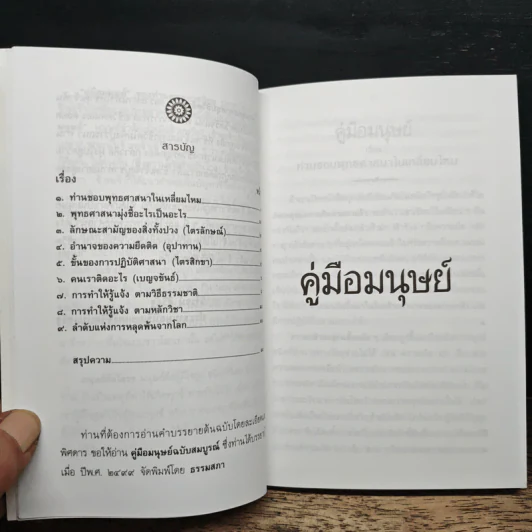 สารบัญ
เรื่อง
๑. ท่านชอบพุทธศาสนาในเหลี่ยมไหน
๒. พุทธศาสนามุ่งชี้อะไรเป็นอะไร
๓. ลักษณะสามัญของสิ่งทั้งปวง (ไตรลักษณ์)
๔. อำนาจของความยึดติด (อุปาทาน)
๕. ขั้นของการปฏิบัติศาสนา (ไตรสิกขา)
๖. คนเราติดอะไร (เบญจขันธ์)
๗. การทำให้รู้แจ้ง ตามวิธีธรรมชาติ
๘. การทำให้รู้แจ้ง ตามหลักวิชา
๙. ลำดับแห่งการหลุดพ้นจากโลก
สรุปความ
ท่านที่ต้องการอ่านคำบรรยายต้นฉบับโดยละเอียด
พิศดาร ขอให้อ่าน คู่มือมนุษย์ฉบับสมบูรณ์ ซึ่งท่านได้บรรยาย
เมื่อ ปีพ.ศ. ๒๔๙๙ จัดพิมพ์โดย ธรรมสภา
คู่มือมนุษย์